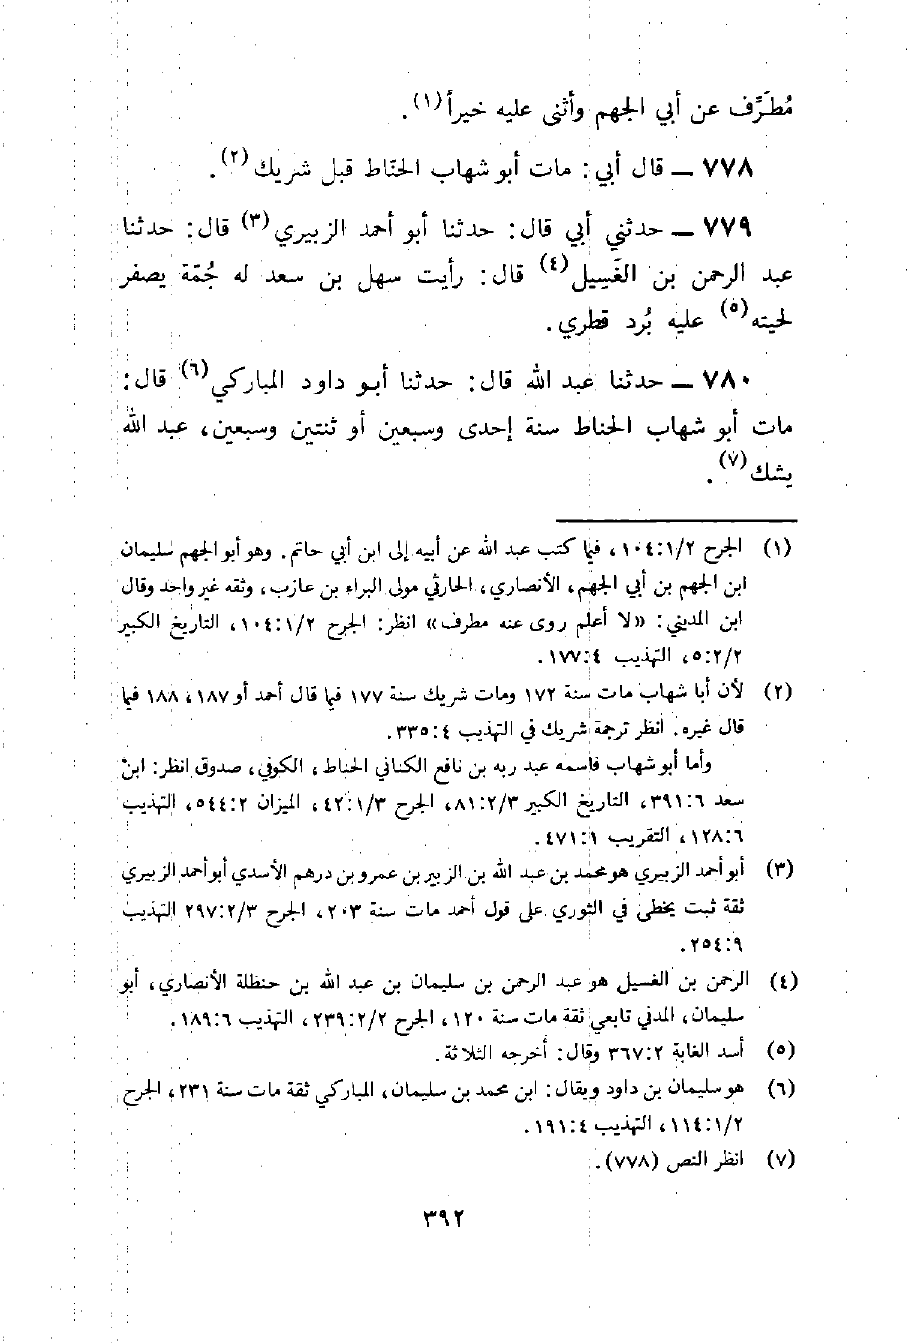 مُطَرِّف عن أبي الجهم وأثنى عليه خيراً(١).
٧٧٨ ــ قال أبي: مات أبو شهاب الحنّاط قبل شريك(٢).
٧٧٩ ــ حدثني أبي قال: حدثنا أبو أحمد الزبيري(٣) قال: حدثنا
عبد الرحمن بن الغَسِيل(٤) قال: رأيت سهل بن سعد له جُمّة يصفر
لحيته(٥) عليه بُرد قطري.
٧٨٠ ــ حدثنا عبد الله قال: حدثنا أبو داود المباركي(٦) قال:
مات أبو شهاب الحناط سنة إحدى وسبعين أو ثنتين وسبعين، عبد الله
يشك(٧).
(١) الجرح ١٠٤:١/٢، فيما كتب عبد الله عن أبيه إلى ابن أبي حاتم. وهو أبو الجهم سليمان
ابن الجهم بن أبي الجهم، الأنصاري، الحارثي مولى البراء بن عازب، وثقه غير واحد وقال
ابن المديني: «لا أعلم روى عنه مطرف» انظر: الجرح ١٠٤:١/٢، التاريخ الكبير
٥:٢/٢، التهذيب ١٧٧:٤.
(٢) لأن أبا شهاب مات سنة ١٧٢ ومات شريك سنة ١٧٧ فيما قال أحمد أو ١٨٧، ١٨٨ فيما
قال غيره. انظر ترجمة شريك في التهذيب ٣٣٥:٤.
وأما أبو شهاب فاسمه عبد ربه بن نافع الكناني الحناط، الكوفي، صدوق انظر: ابن
سعد ٣٩١:٦، التاريخ الكبير ٨١:٢/٣، الجرح ٤٢:١/٣، الميزان ٥٤٤:٢، التهذيب
١٢٨:٦، التقريب ٤٧١:١.
(٣) أبو أحمد الزبيري هو محمد بن عبد الله بن الزبير بن عمرو بن درهم الأسدي أبو أحمد الزبيري
ثقة ثبت يخطئ في الثوري على قول أحمد مات سنة ٢٠٣، الجرح ٢٩٧:٢/٣ التهذيب
٢٥٤:٩.
(٤) الرحمن بن الغسيل هو عبد الرحمن بن سليمان بن عبد الله بن حنظلة الأنصاري، أبو
سليمان، المدني تابعي ثقة مات سنة ١٢٠، الجرح ٢٣٩:٢/٢، التهذيب ١٨٩:٦.
(٥) أسد الغابة ٣٦٧:٢ وقال: أخرجه الثلاثة.
(٦) هو سليمان بن داود ويقال: ابن محمد بن سليمان، المباركي ثقة مات سنة ٢٣١، الجرح
١١٤:١/٢، التهذيب ١٩١:٤.
(٧) انظر النص (٧٧٨).
٣٩٢